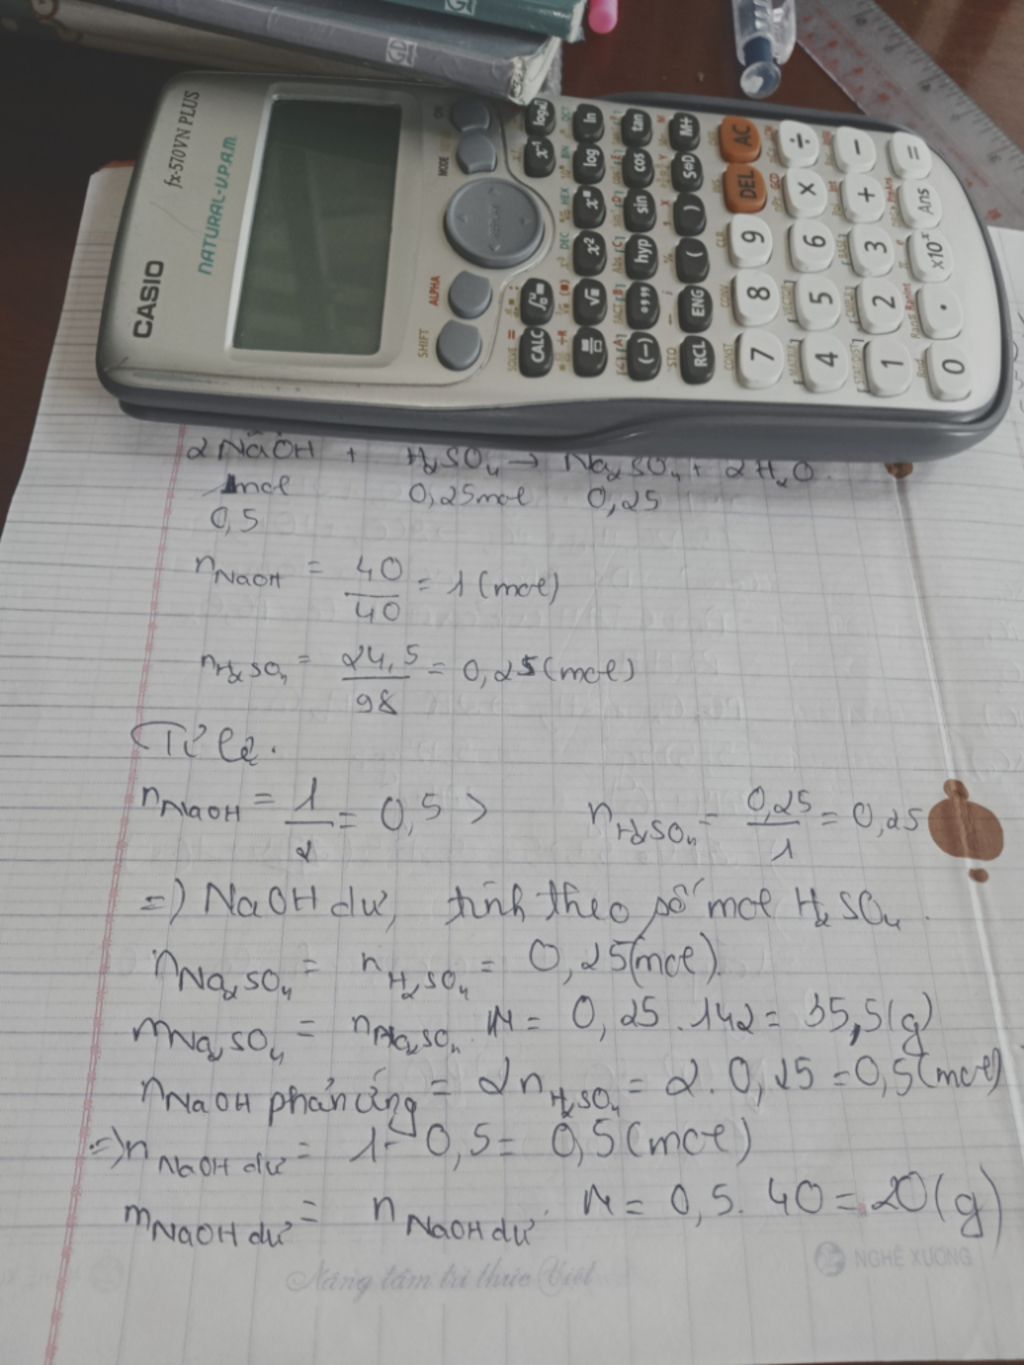 GD
GD
CASIO
fx-570VN PLUS
NATURAL-V.P.A.M.
SHIFT ALPHA MODE ON
CALC ∫ x⁻¹ log
√ x² xⁿ log ln
(-) °'" hyp sin cos tan
RCL ENG ( ) S⇔D M+
7 8 9 DEL AC
4 5 6 × ÷
1 2 3 + −
0 . ×10ˣ Ans =
2NaOH + H₂SO₄ → Na₂SO₄ + 2H₂O.
1mol 0,25mol 0,25
0,5
nNaOH = 40/40 = 1 (mol)
nH₂SO₄ = 24,5/98 = 0,25 (mol)
Tỉ lệ.
nNaOH = 1/2 = 0,5 > nH₂SO₄ = 0,25/1 = 0,25
=) NaOH dư, tính theo số mol H₂SO₄.
nNa₂SO₄ = nH₂SO₄ = 0,25(mol).
mNa₂SO₄ = nNa₂SO₄. M = 0,25.142 = 35,5(g)
nNaOH phản ứng = 2nH₂SO₄ = 2. 0,25 = 0,5(mol)
=) nNaOH dư = 1 - 0,5 = 0,5(mol)
mNaOH dư = nNaOH dư. M = 0,5. 40 = 20(g)
Nâng tầm tri thức Việt
NGHỆ XƯƠNG